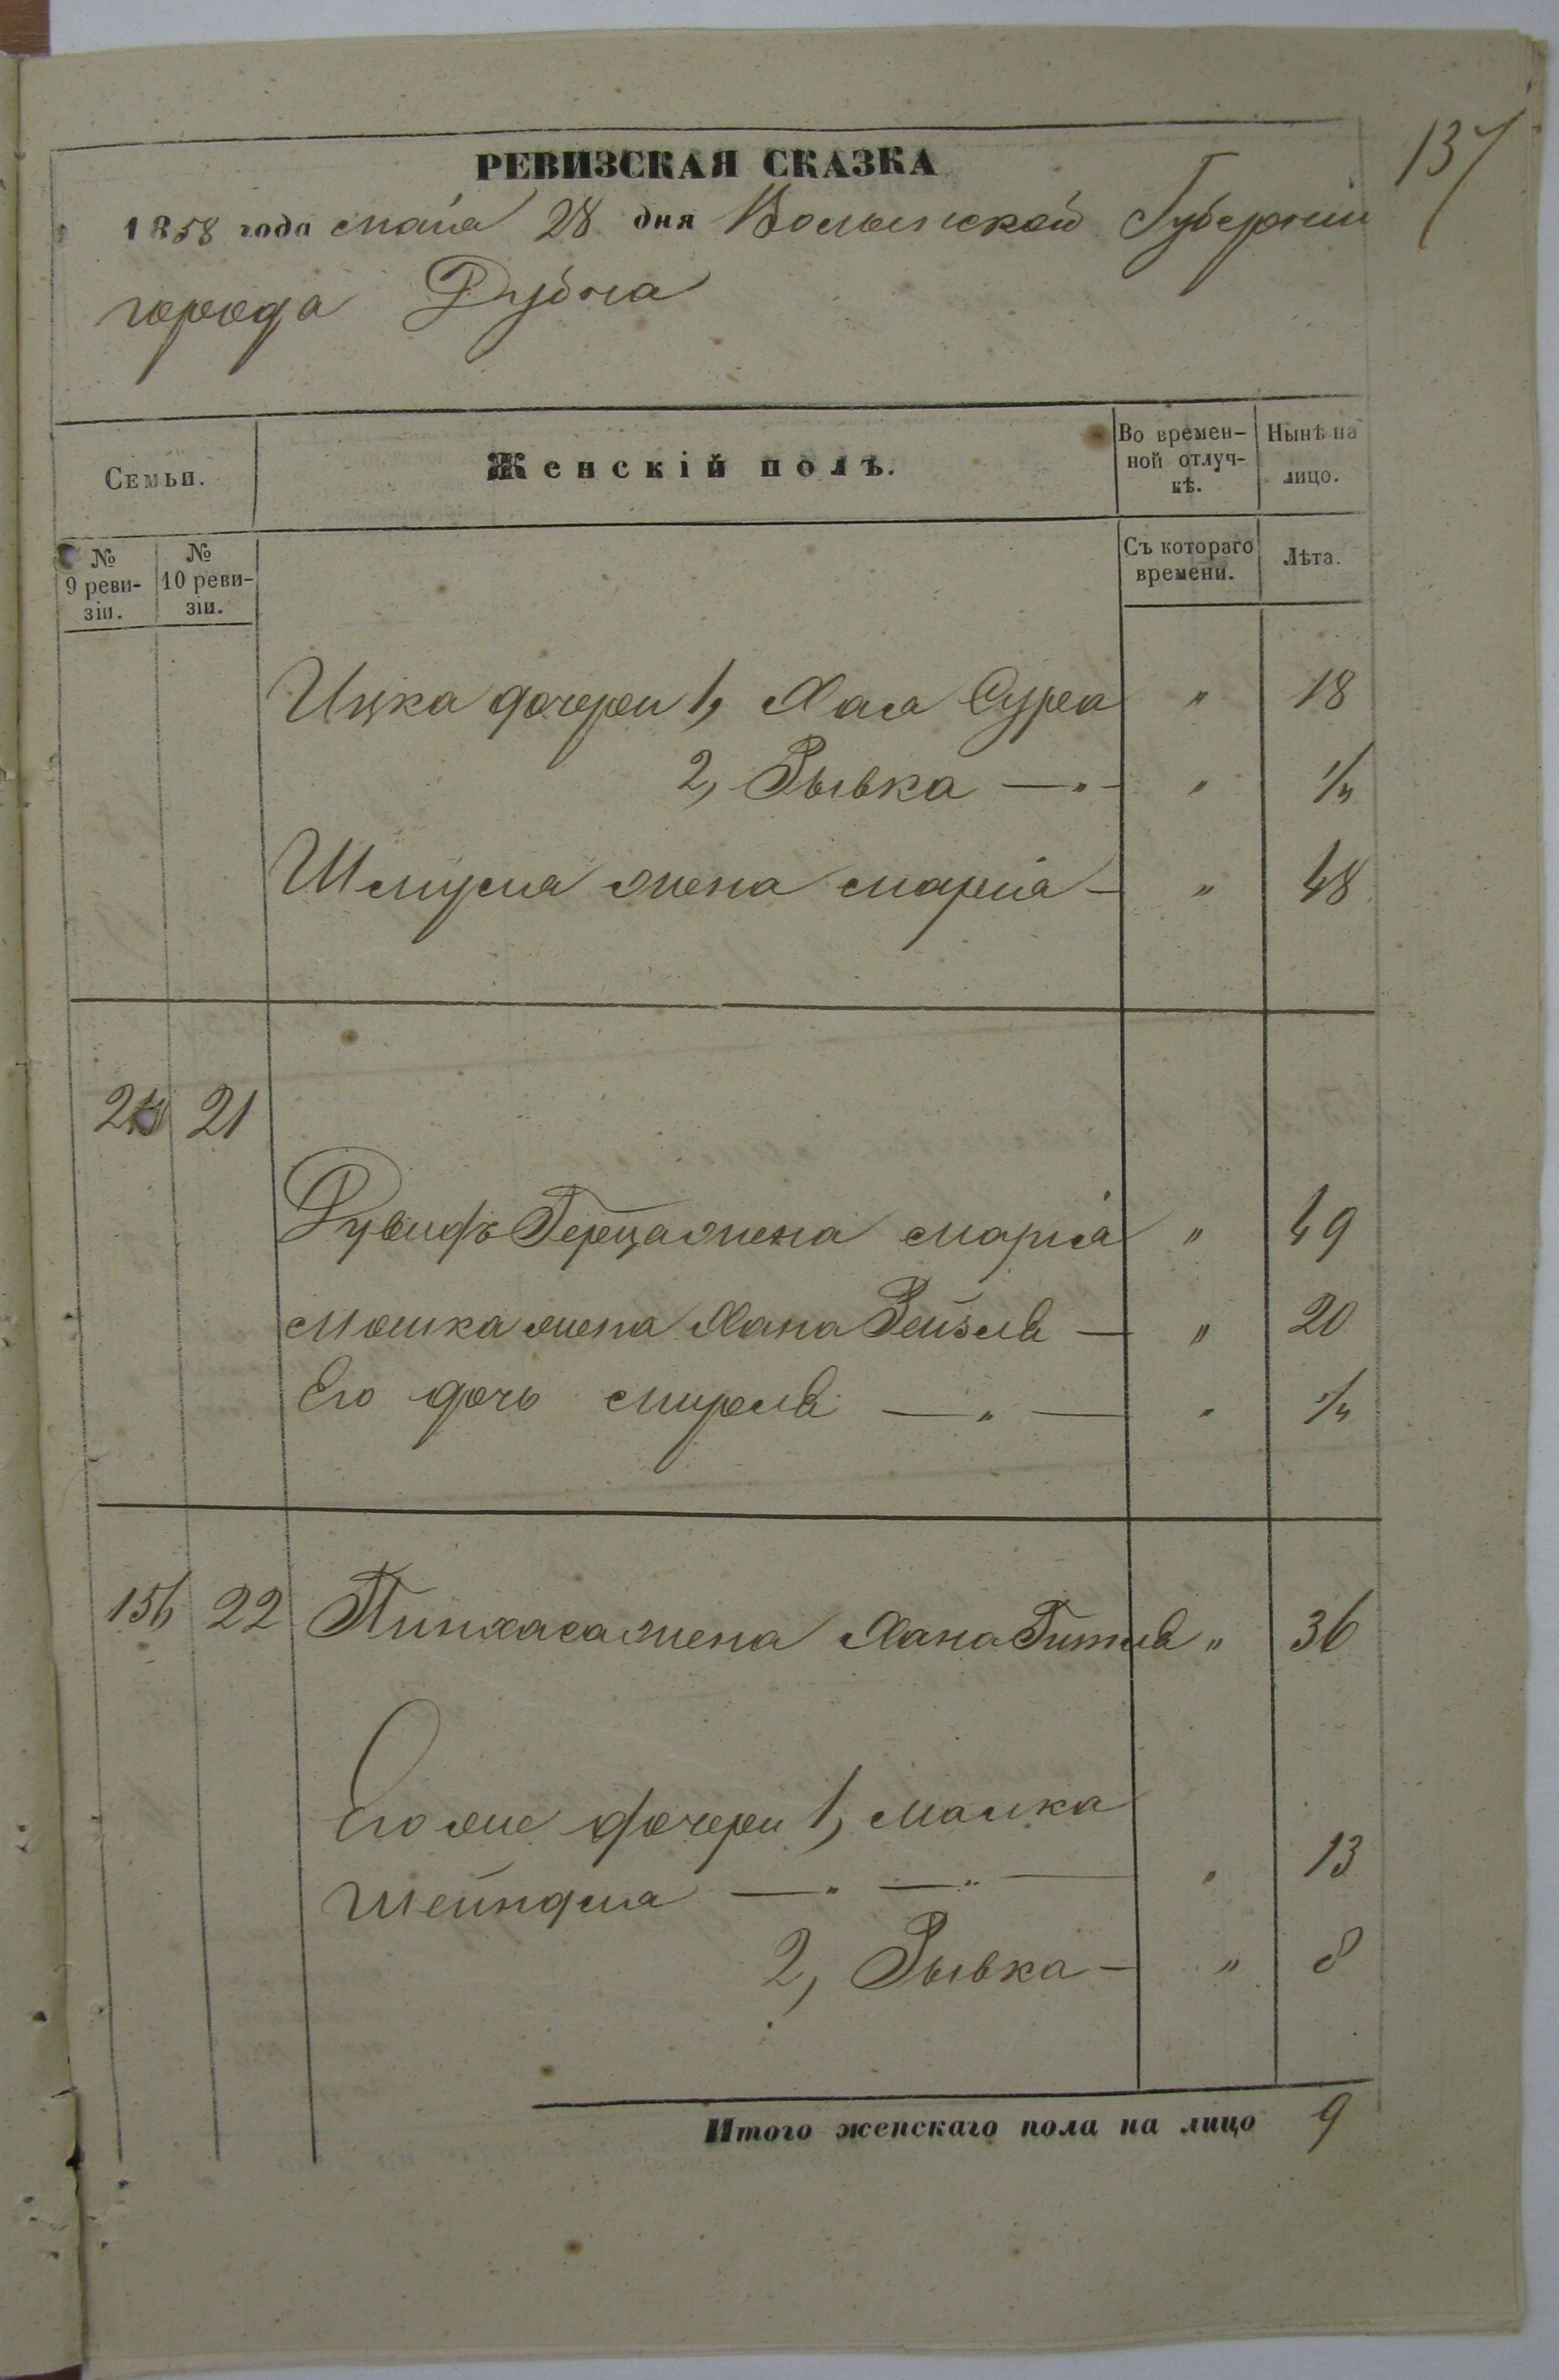 137
РЕВИЗСКАЯ СКАЗКА
1858 года мая 28 дня Волынской Губернии
города Дубна
Семьи.
Женскій полъ.
Во времен-
ной отлуч-
кѣ.
Нынѣ на
лицо.
№
9 реви-
зіи.
№
10 реви-
зіи.
Съ котораго
времени.
Лѣта.
Ицка дочери 1, Хая Сура " 18
2, Рывка — " — " 1/4
Шмуля жена марія — " 48
21
Рувинъ Герца жена марія " 49
Мошка жена Хана Рейзля — " 20
Его дочь мирля — " — " 1/4
156 22 Пинхаса жена Хана Гитля " 36
Его же дочери 1, малка
шейндля — " — " — " 13
2, Рывка — " 8
Итого женскаго пола на лицо 9